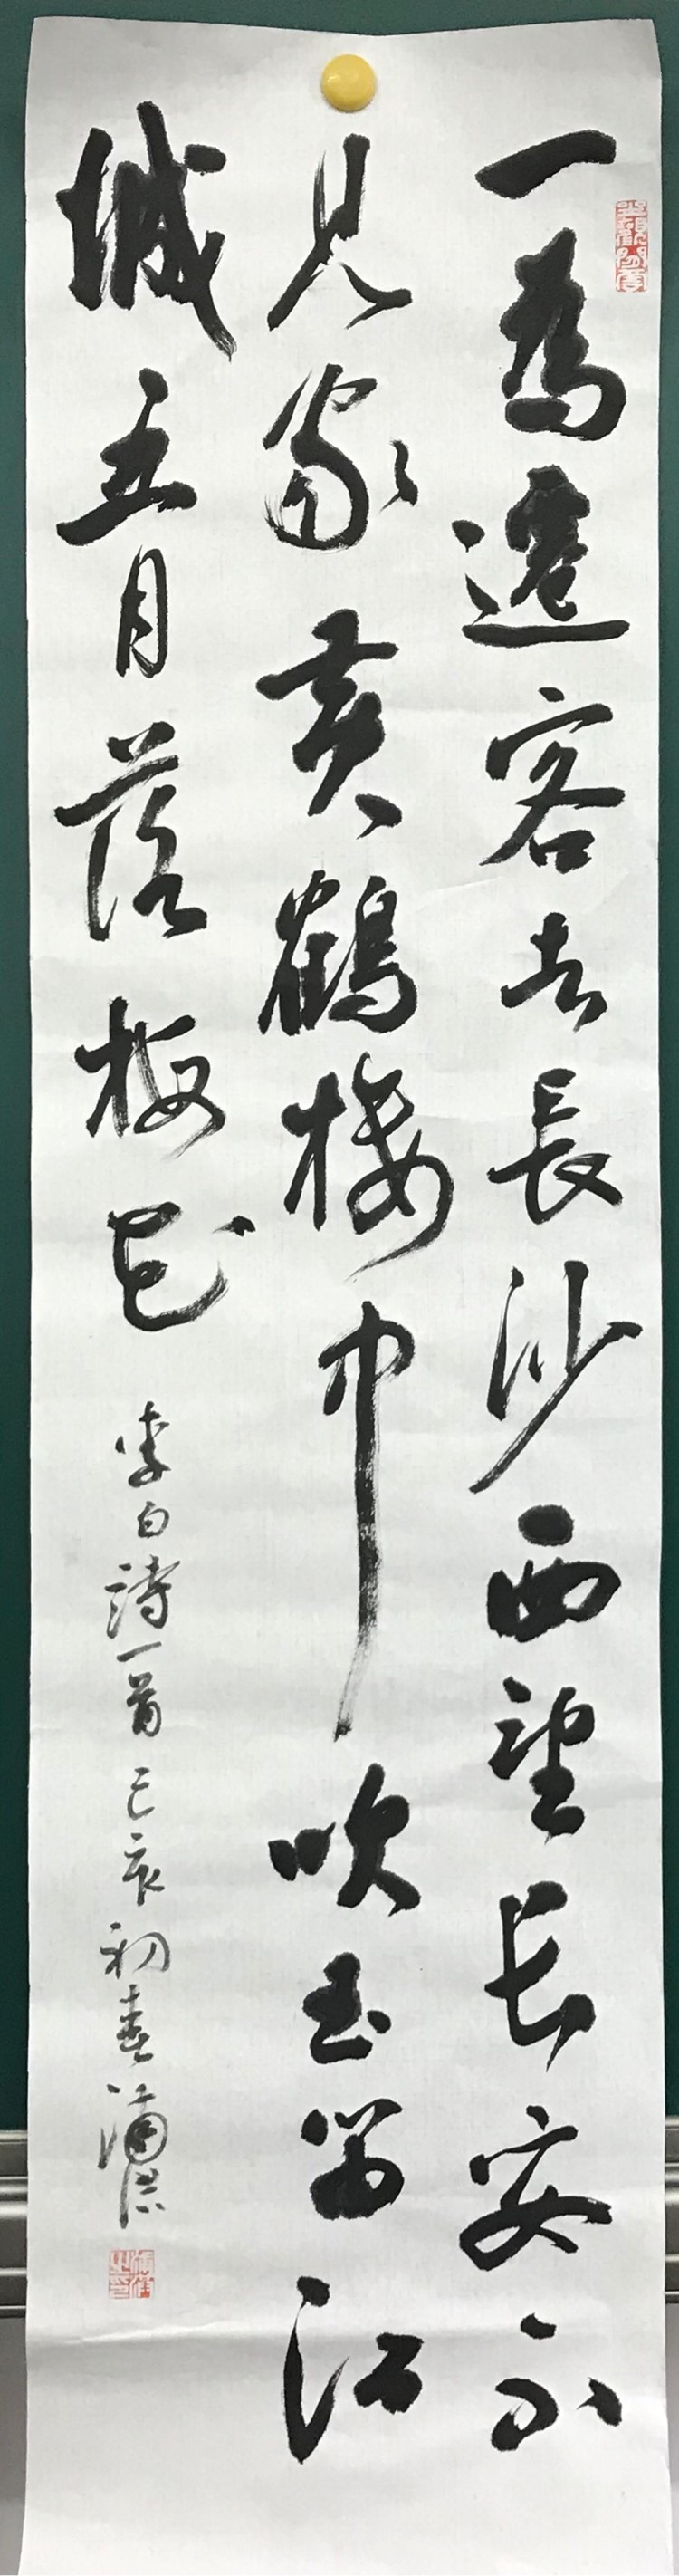 一為遷客去長沙西望長安不
見家黃鶴樓中吹玉笛江
城五月落梅花
李白詩一首己亥初春蒲